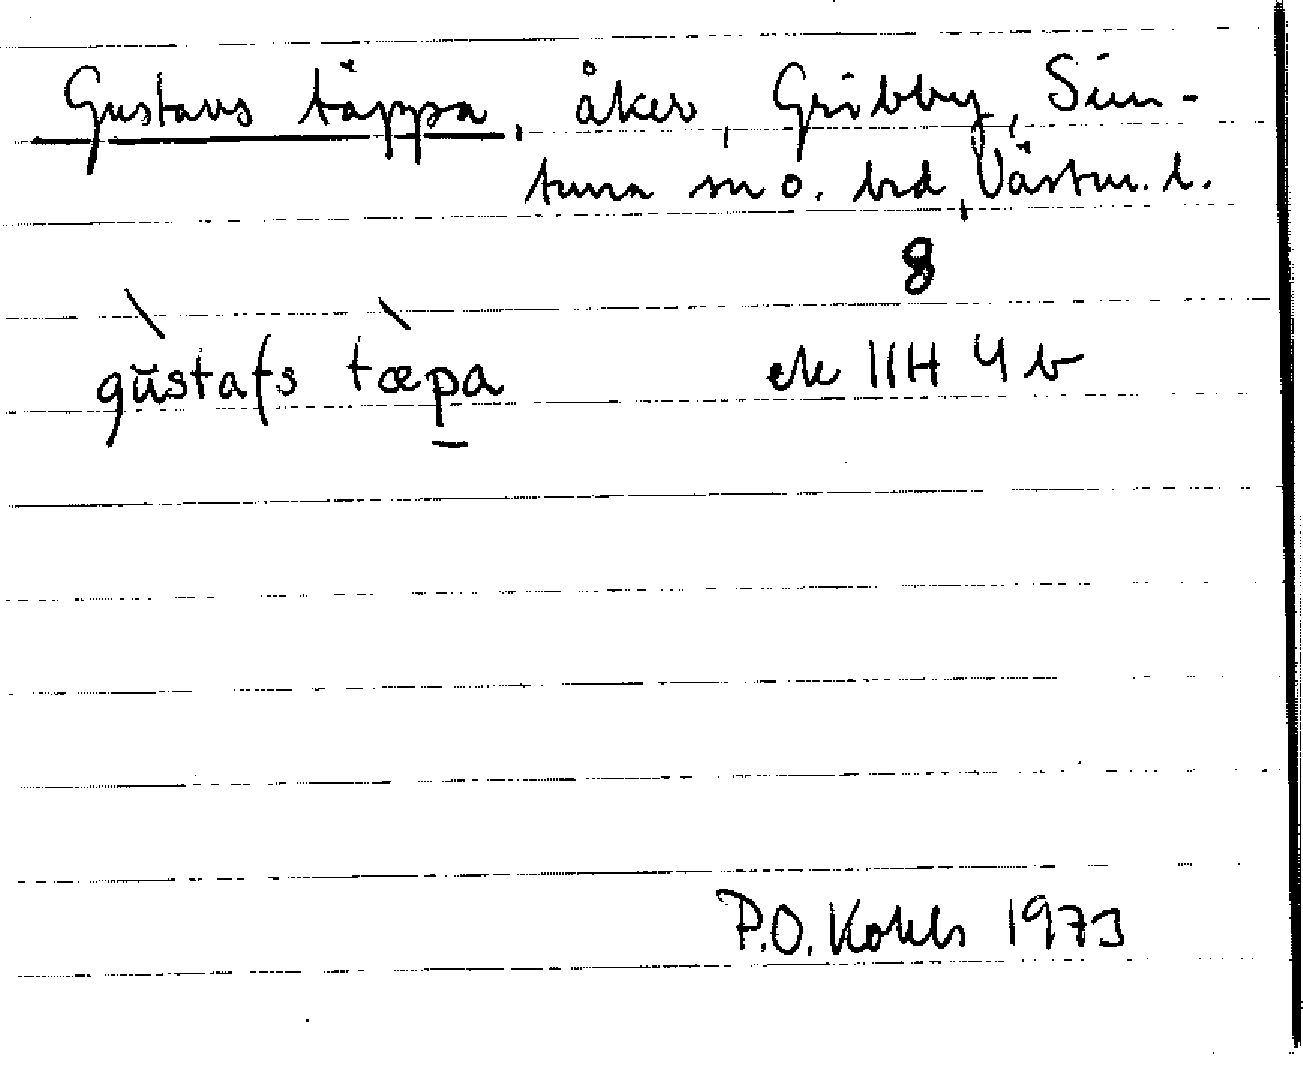 Gustavs täppa, åker, Gribby, Sim-
tuna sn o. hd, Västm. l.
8
gustafs tæpa ek 11H 4 b
P.O. Kohls 1973